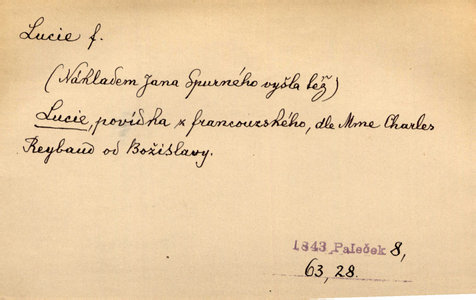 Lucie f.
(Nákladem Jana Spurného vyšla též)
Lucie, povídka z francouzského, dle Mme Charles
Reybaud od Božislavy.
1843 Paleček 8,
63, 28.